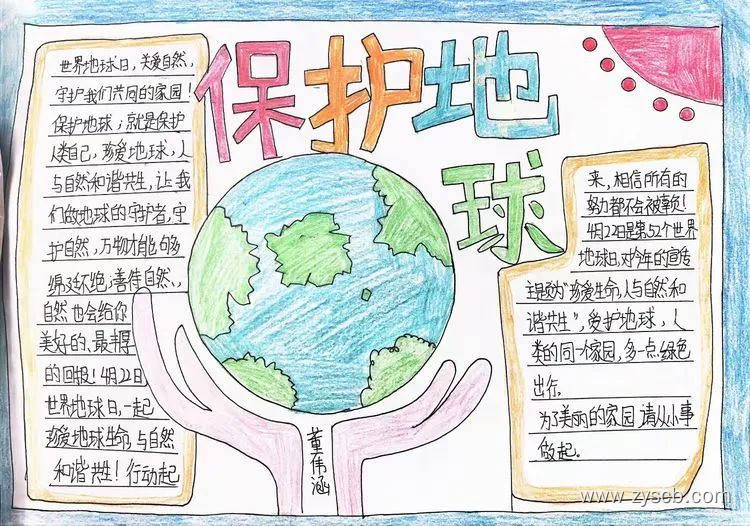 保护地
球
世界地球日，关爱自然，
守护我们共同的家园！
保护地球，就是保护
人类自己，珍爱地球，人
与自然和谐共生，让我
们做地球的守护者，守
护自然，万物才能够
绵延不绝；善待自然，
自然也会给你
美好的、最丰厚
的回报！4月22日
世界地球日，一起
珍爱地球生命，与自然
和谐共生！行动起
来，相信所有的
努力都不会被辜负！
4月22日是第52个世界
地球日，对今年的宣传
主题为“珍爱生命，人与自然和
谐共生”，爱护地球，人
类的同一个家园，多一点绿色
出行。
为了美丽的家园请从小事
做起。
董伟涵
www.zyseb.com